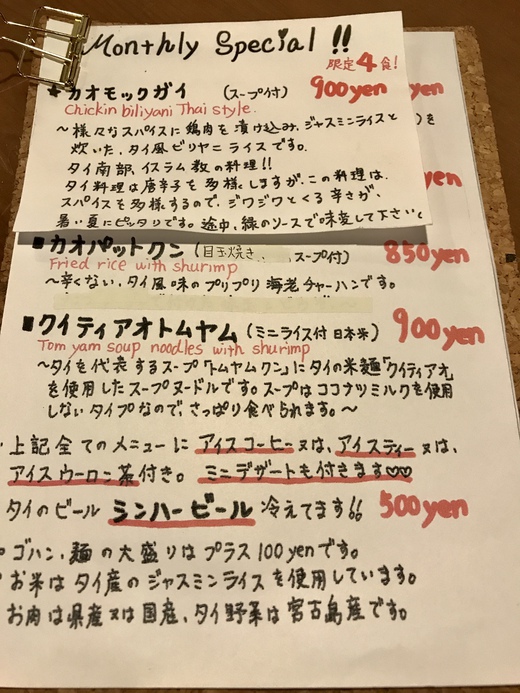 Monthly Special !!
限定4食!
★カオモックガイ (スープ付) 900yen
Chickin biliyani Thai style.
〜様々なスパイスに鶏肉を漬け込み、ジャスミンライスと
炊いた、タイ風ビリヤニライスです。
タイ南部、イスラム教の料理!!
タイ料理は唐辛子を多様しますが、この料理は、
スパイスを多様するので、ジワジワとくる辛さが、
暑い夏にピッタリです。途中、緑のソースで味変して下さい
yen
を
yen
■カオパットクン (目玉焼き スープ付) 850yen
Fried rice with shurimp
〜辛くない、タイ風味のプリプリ海老チャーハンです。
■クイティアオトムヤム (ミニライス付 日本米) 900yen
Tom yam soup noodles with shurimp
〜タイを代表するスープ「トムヤムクン」にタイの米麺「クイティアオ」
を使用したスープヌードルです。スープはココナツミルクを使用
しないタイプなので、さっぱり食べられます。〜
上記全てのメニューに アイスコーヒー又は、アイスティー又は、
アイスウーロン茶付き。 ミニデザートも付きます♡♡
タイのビール シンハービール 冷えてます!! 500yen
ゴハン、麺の大盛りはプラス100yenです。
お米はタイ産のジャスミンライスを使用しています。
お肉は県産又は国産、タイ野菜は宮古島産です。